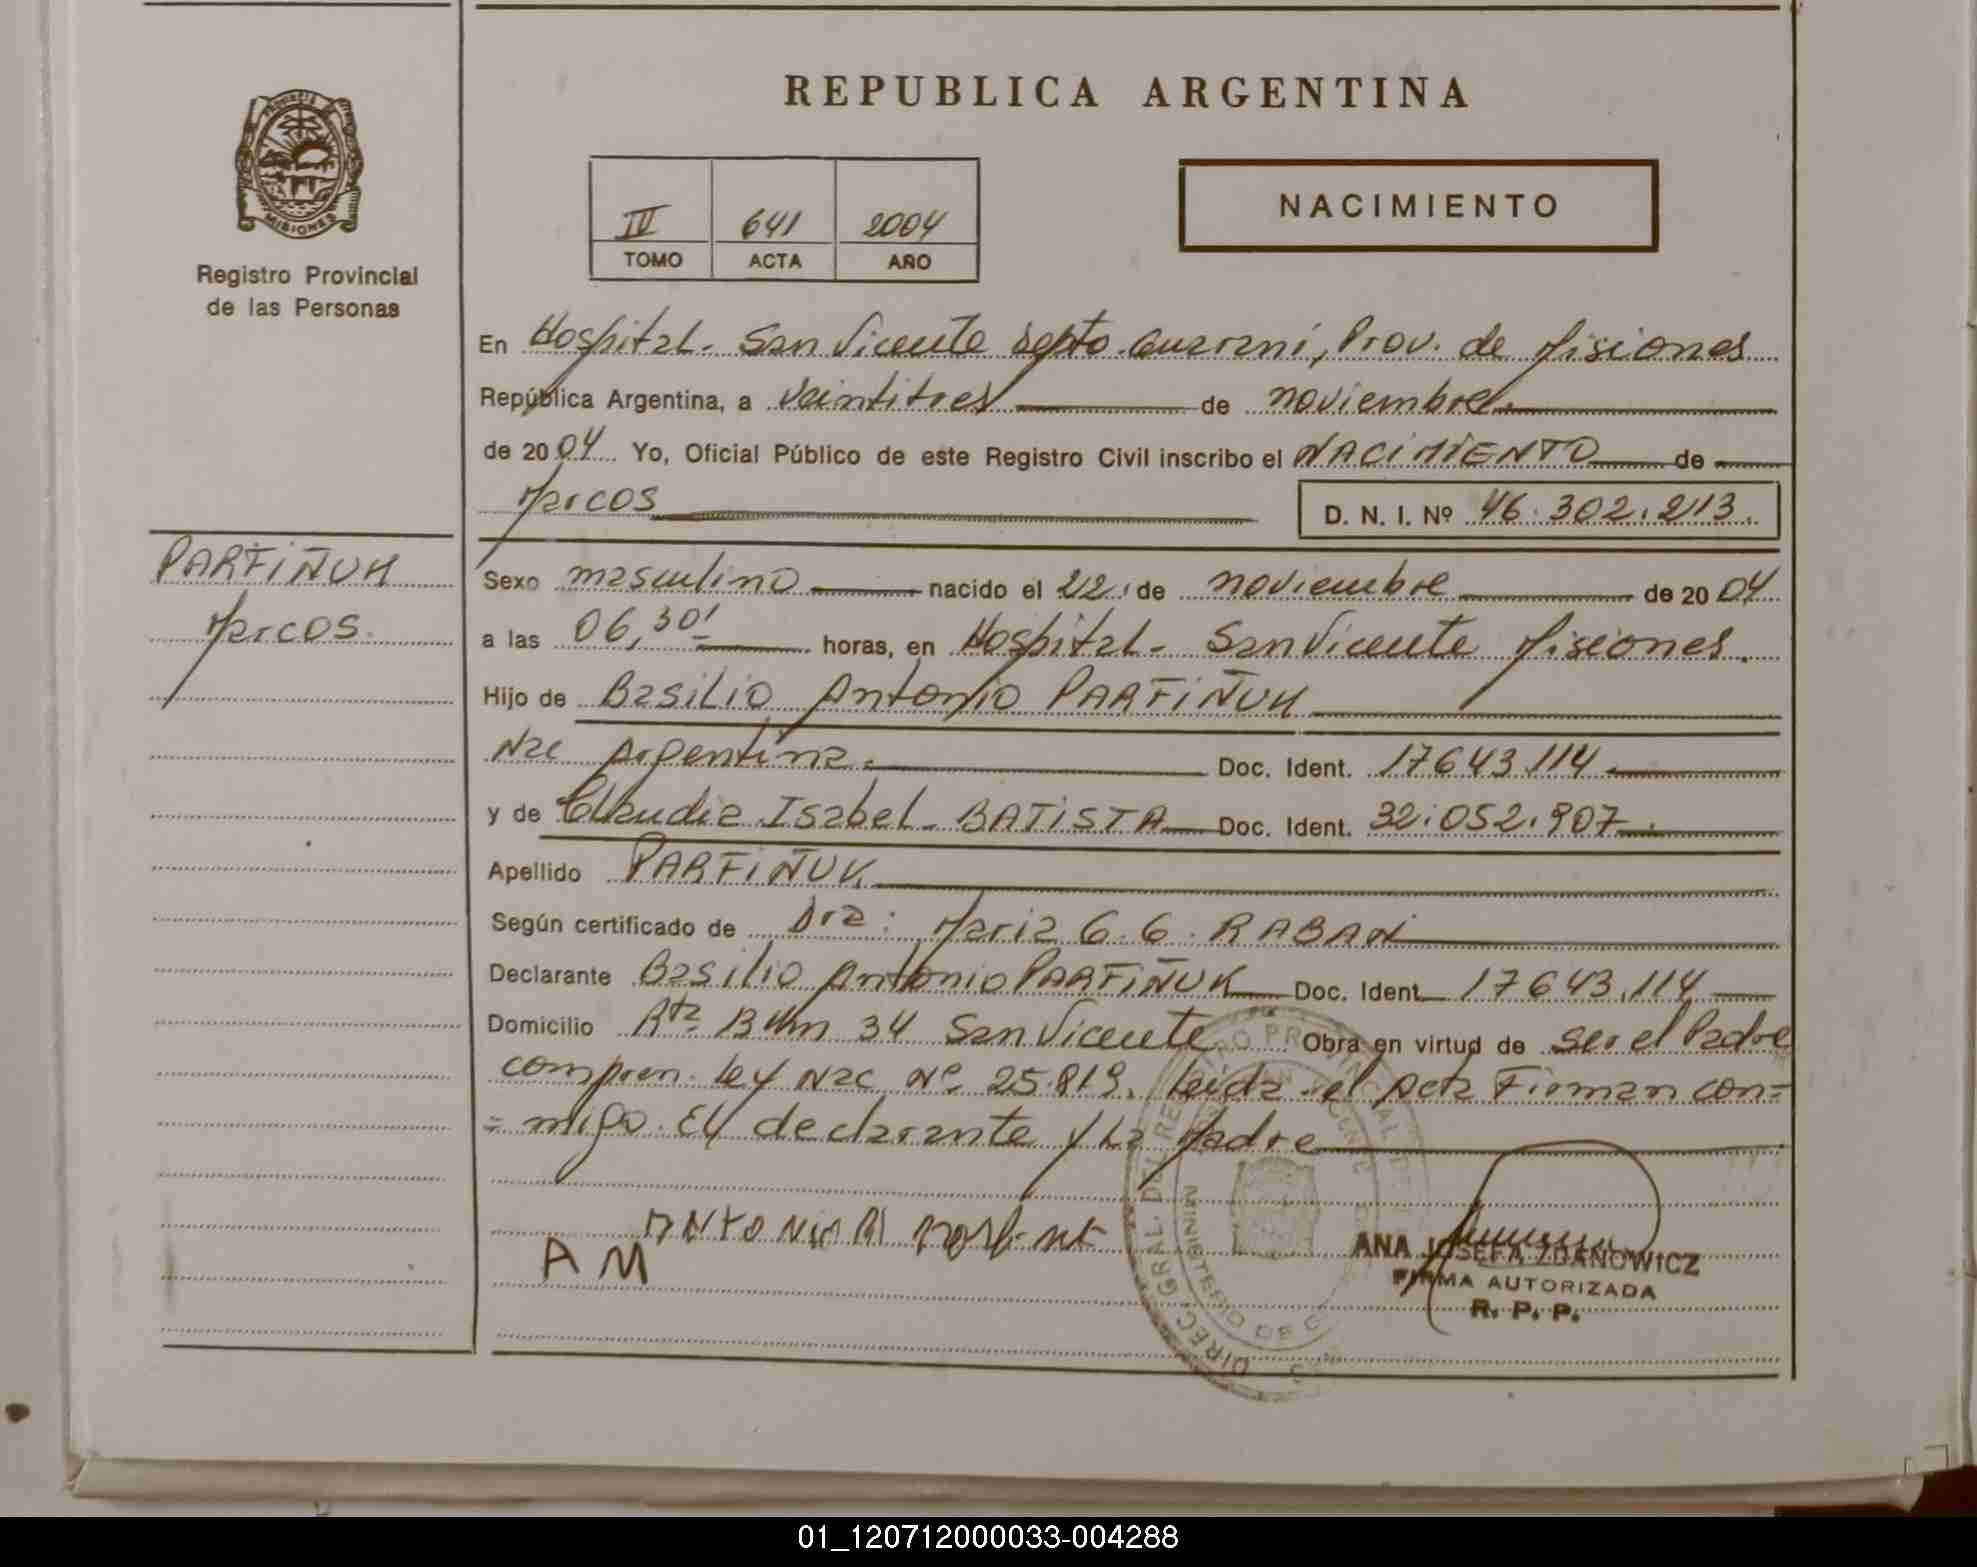 REPUBLICA ARGENTINA
PROVINCIA DE MISIONES
Registro Provincial
de las Personas
IV 641 2004
TOMO ACTA AÑO
NACIMIENTO
En Hospital - San Vicente Depto. Guaraní, Prov. de Misiones
República Argentina, a veintitres de noviembre
de 2004 Yo, Oficial Público de este Registro Civil inscribo el NACIMIENTO de
Marcos D. N. I. Nº 46.302.213.
PARFIÑUK
Marcos
Sexo masculino nacido el 22 de noviembre de 2004
a las 06,30' horas, en Hospital - San Vicente Misiones.
Hijo de Basilio Antonio PARFIÑUK
Nac Argentina. Doc. Ident. 17643.114
y de Claudia Isabel - BATISTA Doc. Ident. 32.052.907.
Apellido PARFIÑUK
Según certificado de Dra: Maria G. G. RABAN
Declarante Basilio Antonio PARFIÑUK Doc. Ident. 17643.114
Domicilio Rta 13 Km 34 San Vicente Obra en virtud de ser el Padre
compren. Ley Nac Nº 25.819. Leida el Acta Firman con=
= migo. El declarante y La Madre
A M
ANA JOSEFA ZDANOWICZ
FIRMA AUTORIZADA
R. P. P.
01_120712000033-004288